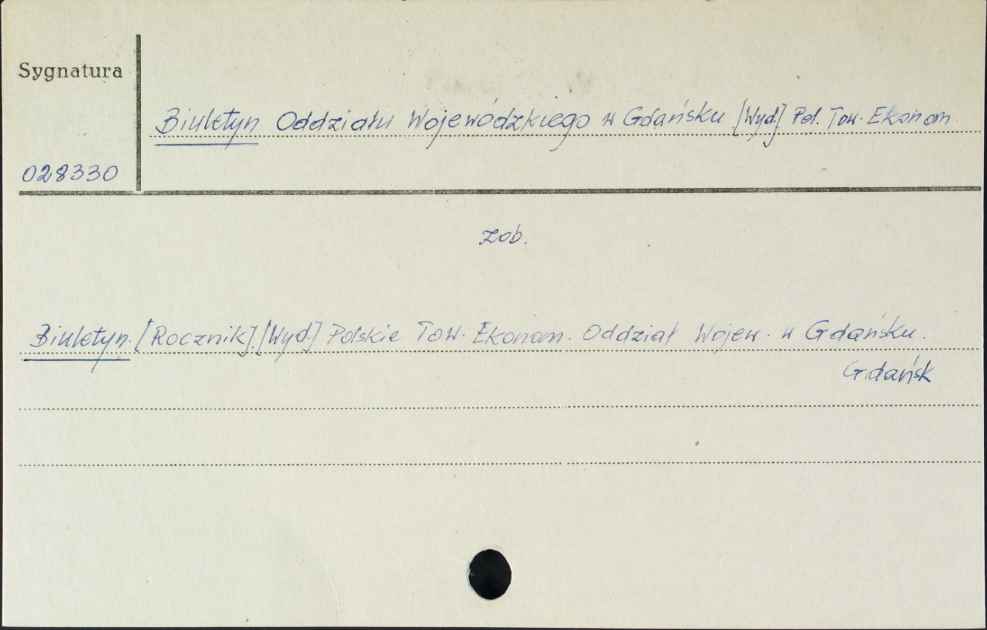 Sygnatura
Biuletyn Oddziału Wojewódzkiego w Gdańsku [Wyd] Pol. Tow. Ekonom
028330
zob.
Biuletyn. [Rocznik]. [Wyd] Polskie Tow. Ekonom. Oddział Wojew. w Gdańsku.
Gdańsk